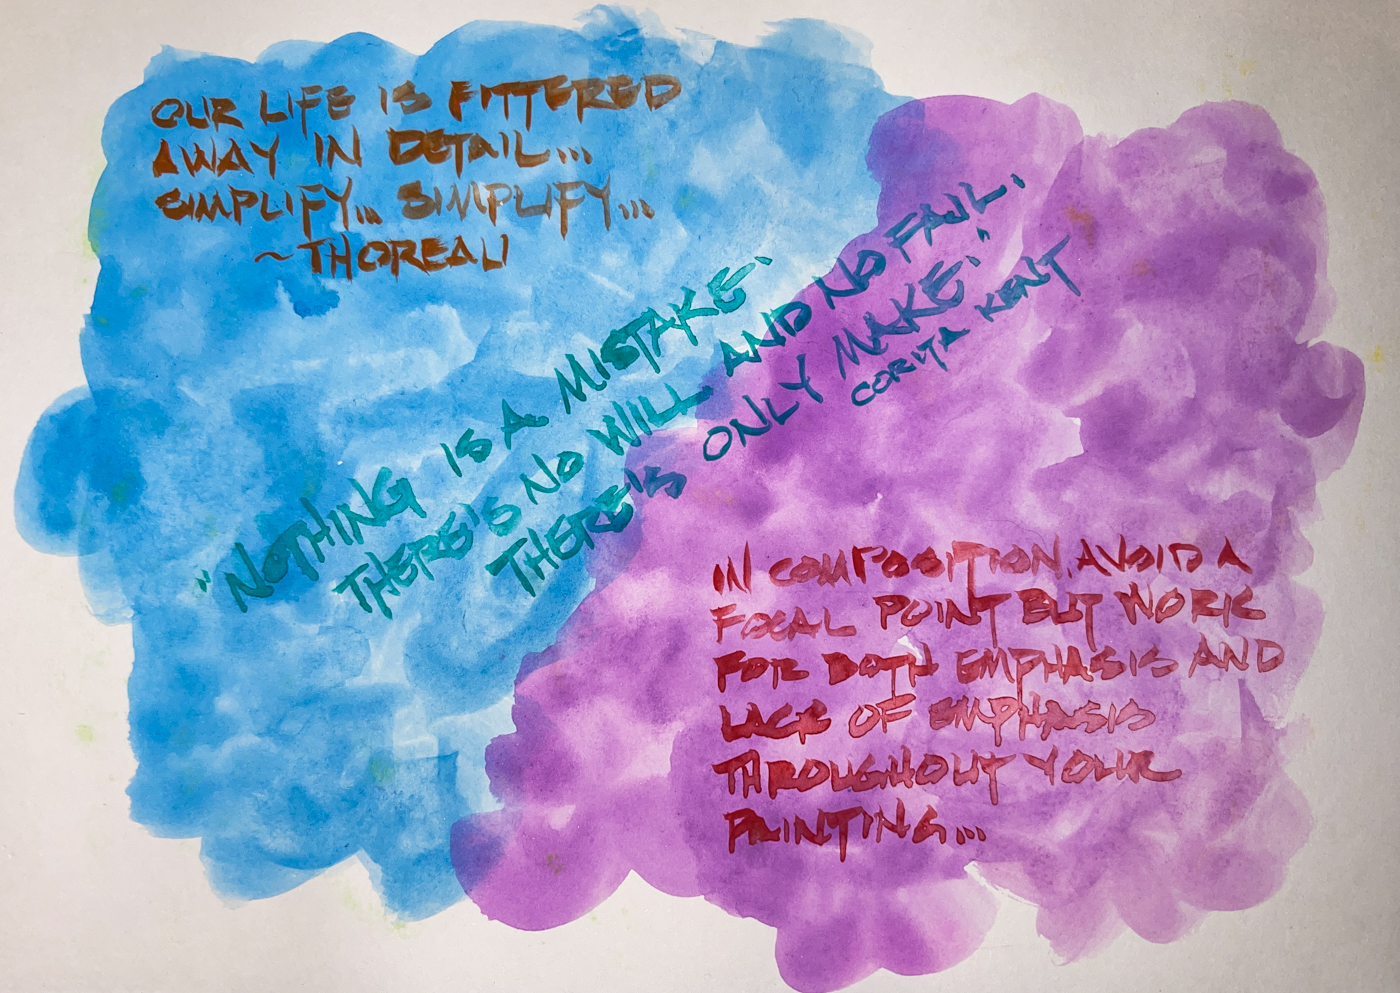 OUR LIFE IS FITTERED
AWAY IN DETAIL...
SIMPLIFY... SIMPLIFY...
~ THOREAU
"NOTHING IS A MISTAKE.
THERE'S NO WILL AND NO FAIL.
THERE'S ONLY MAKE."
CORITA KENT
IN COMPOSITION, AVOID A
FOCAL POINT BUT WORK
FOR BOTH EMPHASIS AND
LACK OF EMPHASIS
THROUGHOUT YOUR
PAINTING...